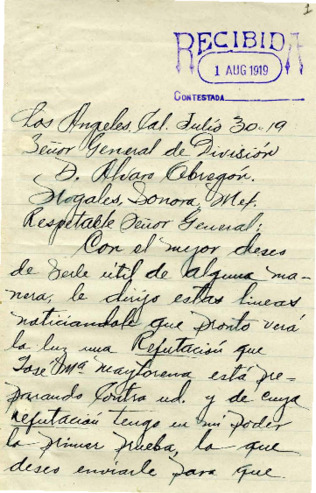 1
RECIBIDA
1 AUG 1919
CONTESTADA
Los Angeles, Cal. Julio 30-19
Señor General de División
D. Alvaro Obregón.
Nogales, Sonora, Mex.
Respetable Señor General:
Con el mejor deseo
de serle útil de alguna ma-
nera, le dirijo estas lineas
noticiandole que pronto verá
la luz una Refutación que
Jose Mª Maytorena está pre-
parando contra ud. y de cuya
refutación tengo en mi poder
la primer prueba, la que
deseo enviarle para que